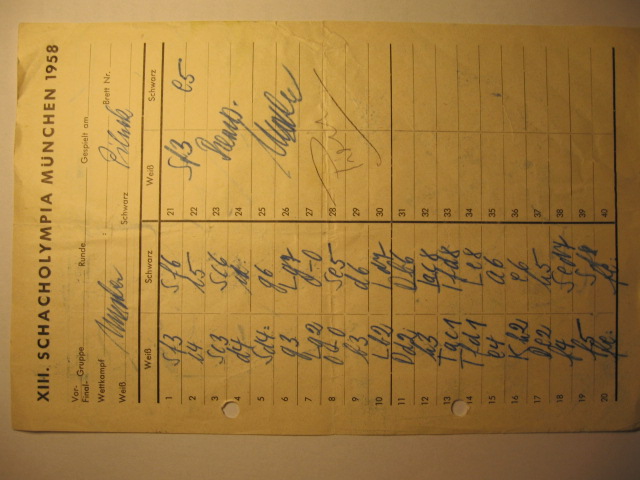 XIII. SCHACHOLYMPIA MÜNCHEN 1958
Vor-
Final- Gruppe Runde Gespielt am
Wettkampf Brett Nr.
Weiß Schwarz
Weiß Schwarz Weiß Schwarz
1 Sf3 Sf6 21 Sf3 e5
2 c4 c5 22
3 Sc3 Sc6 23 Remis.
4 d4 24
5 Sd4: g6 25
6 g3 Lg7 26
7 Lg2 0-0 27
8 0-0 Se5 28
9 b3 d6 29
10 Lb2 Ld7 30
11 Dd2 Db6 31
12 h3 Tac8 32
13 Tac1 Tfd8 33
14 Tfd1 Le8 34
15 e4 a6 35
16 Kh2 e6 36
17 De2 h5 37
18 f4 Sed7 38
19 f5 Sf8 39
20 fe: fe: 40